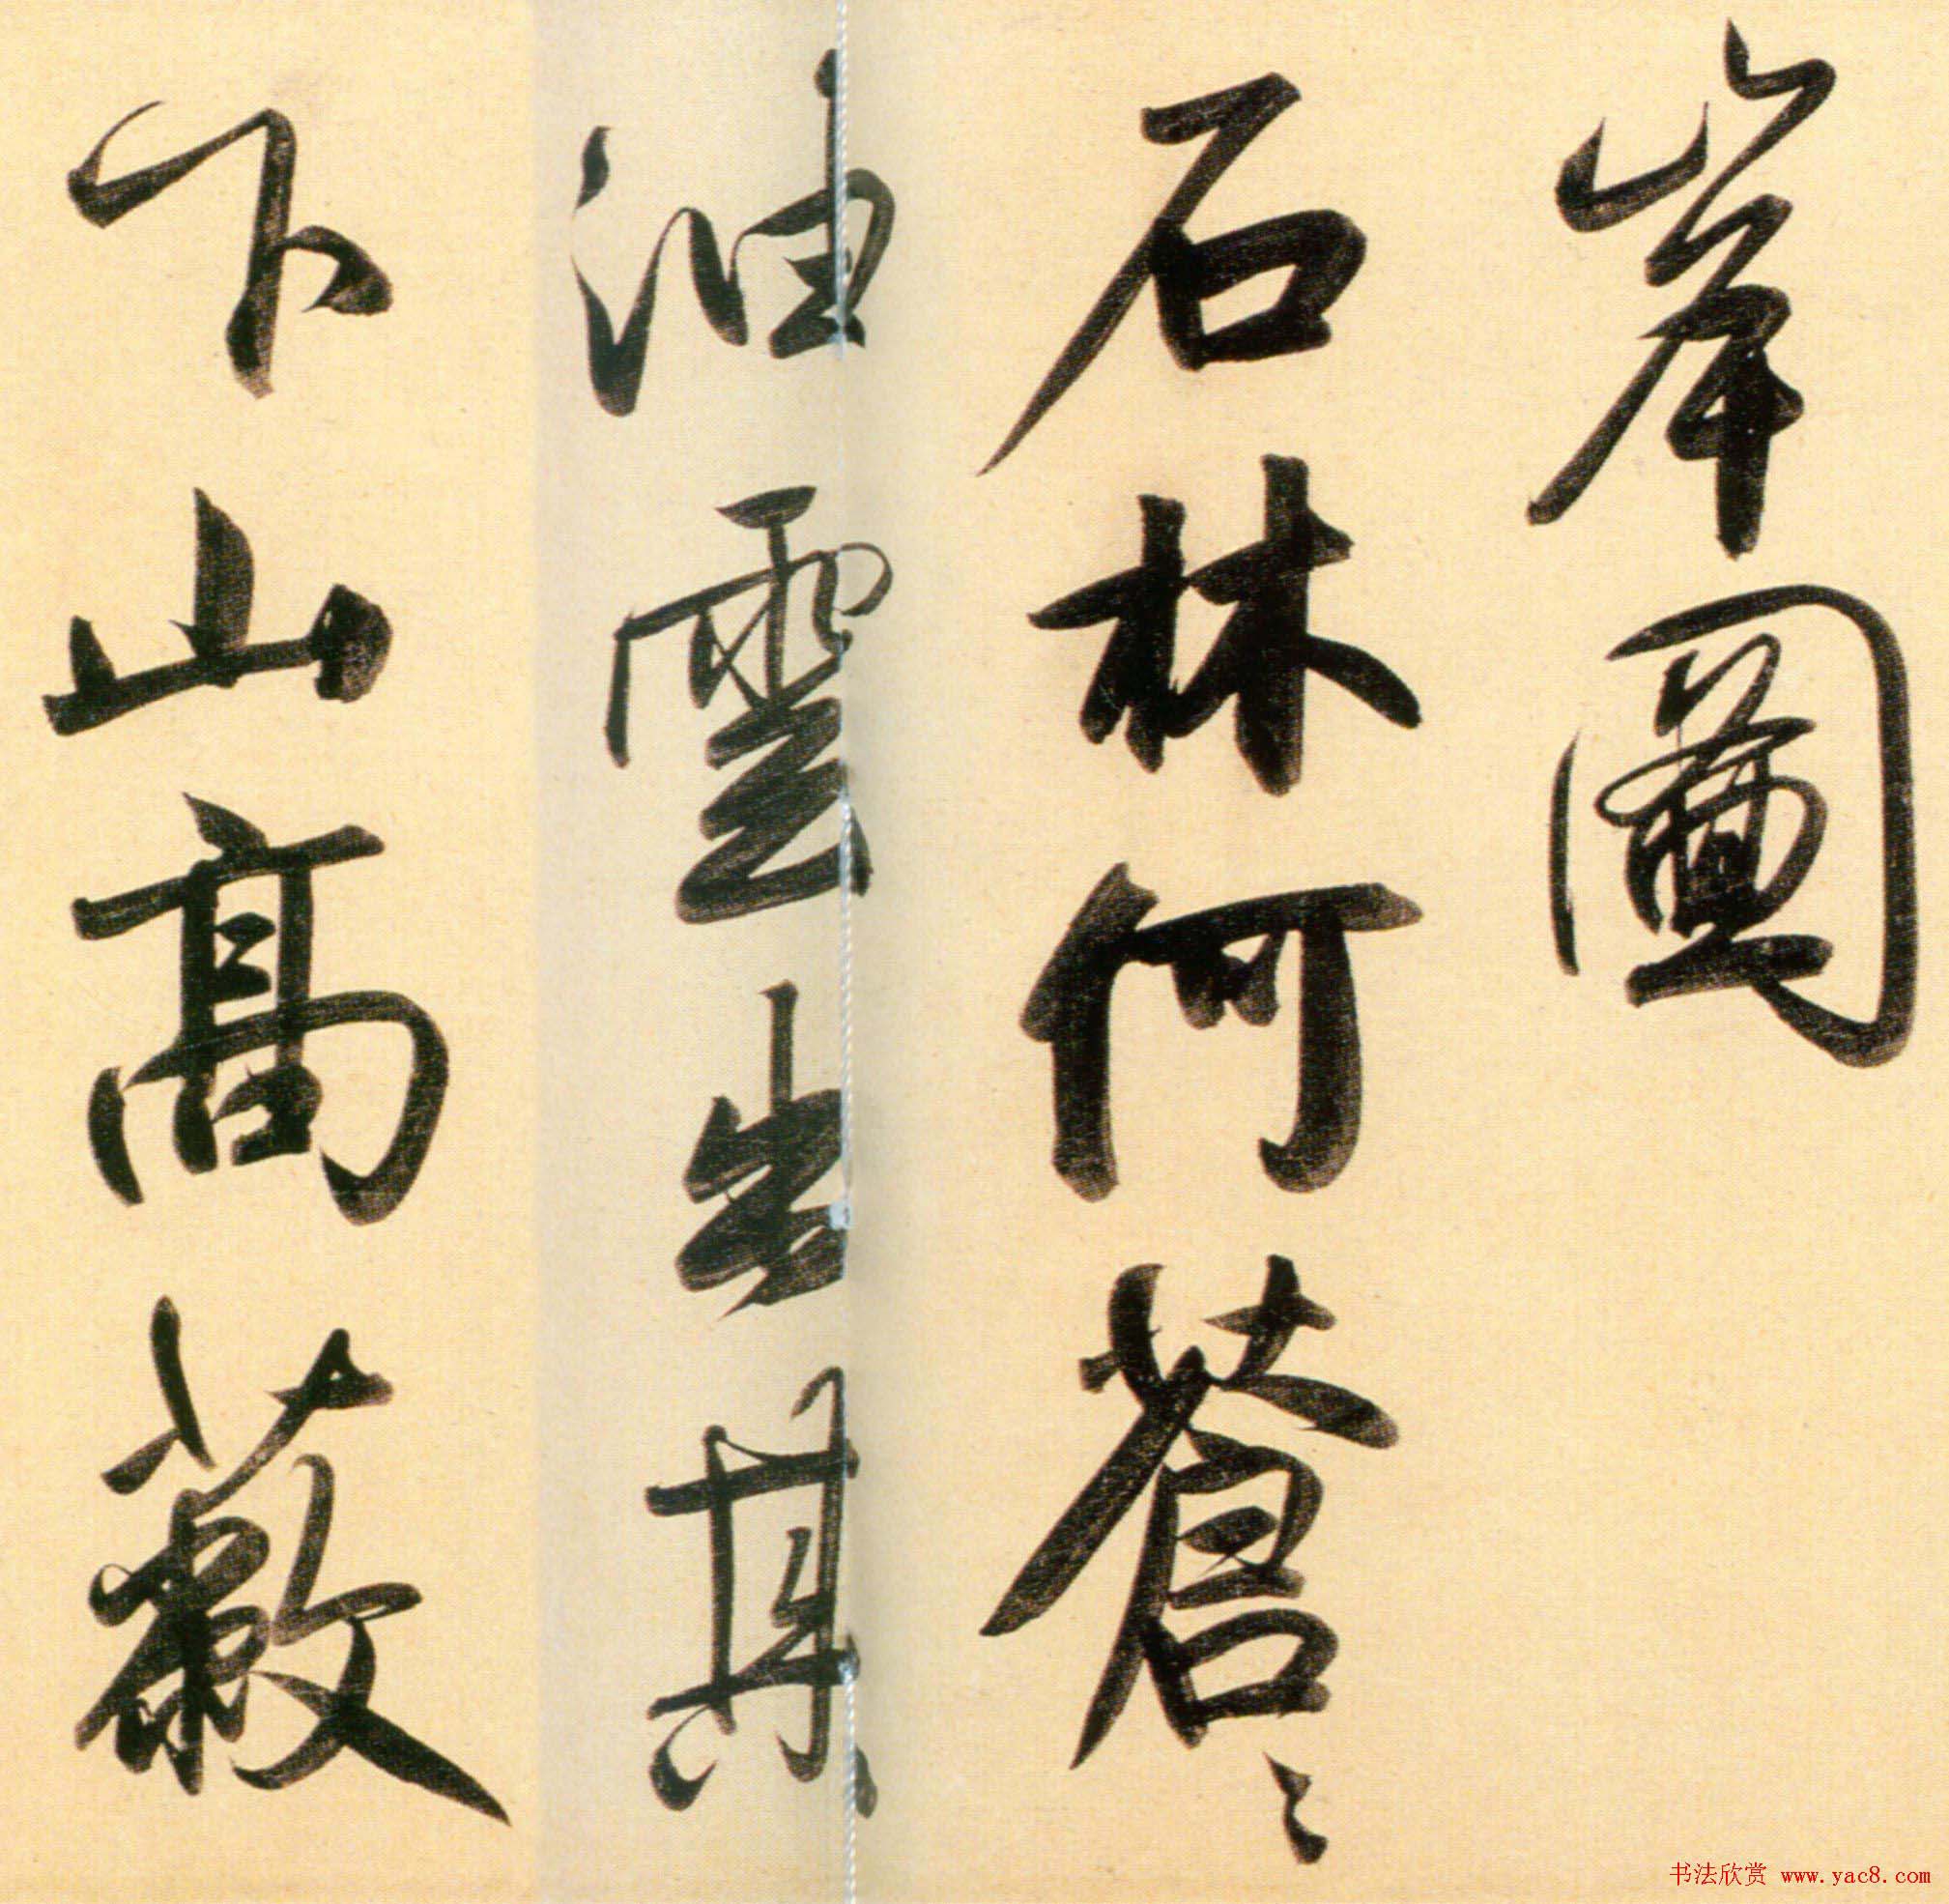 岸圖
石林何蒼〻
油雲出其
下山高蔽
书法欣赏 www.yac8.com